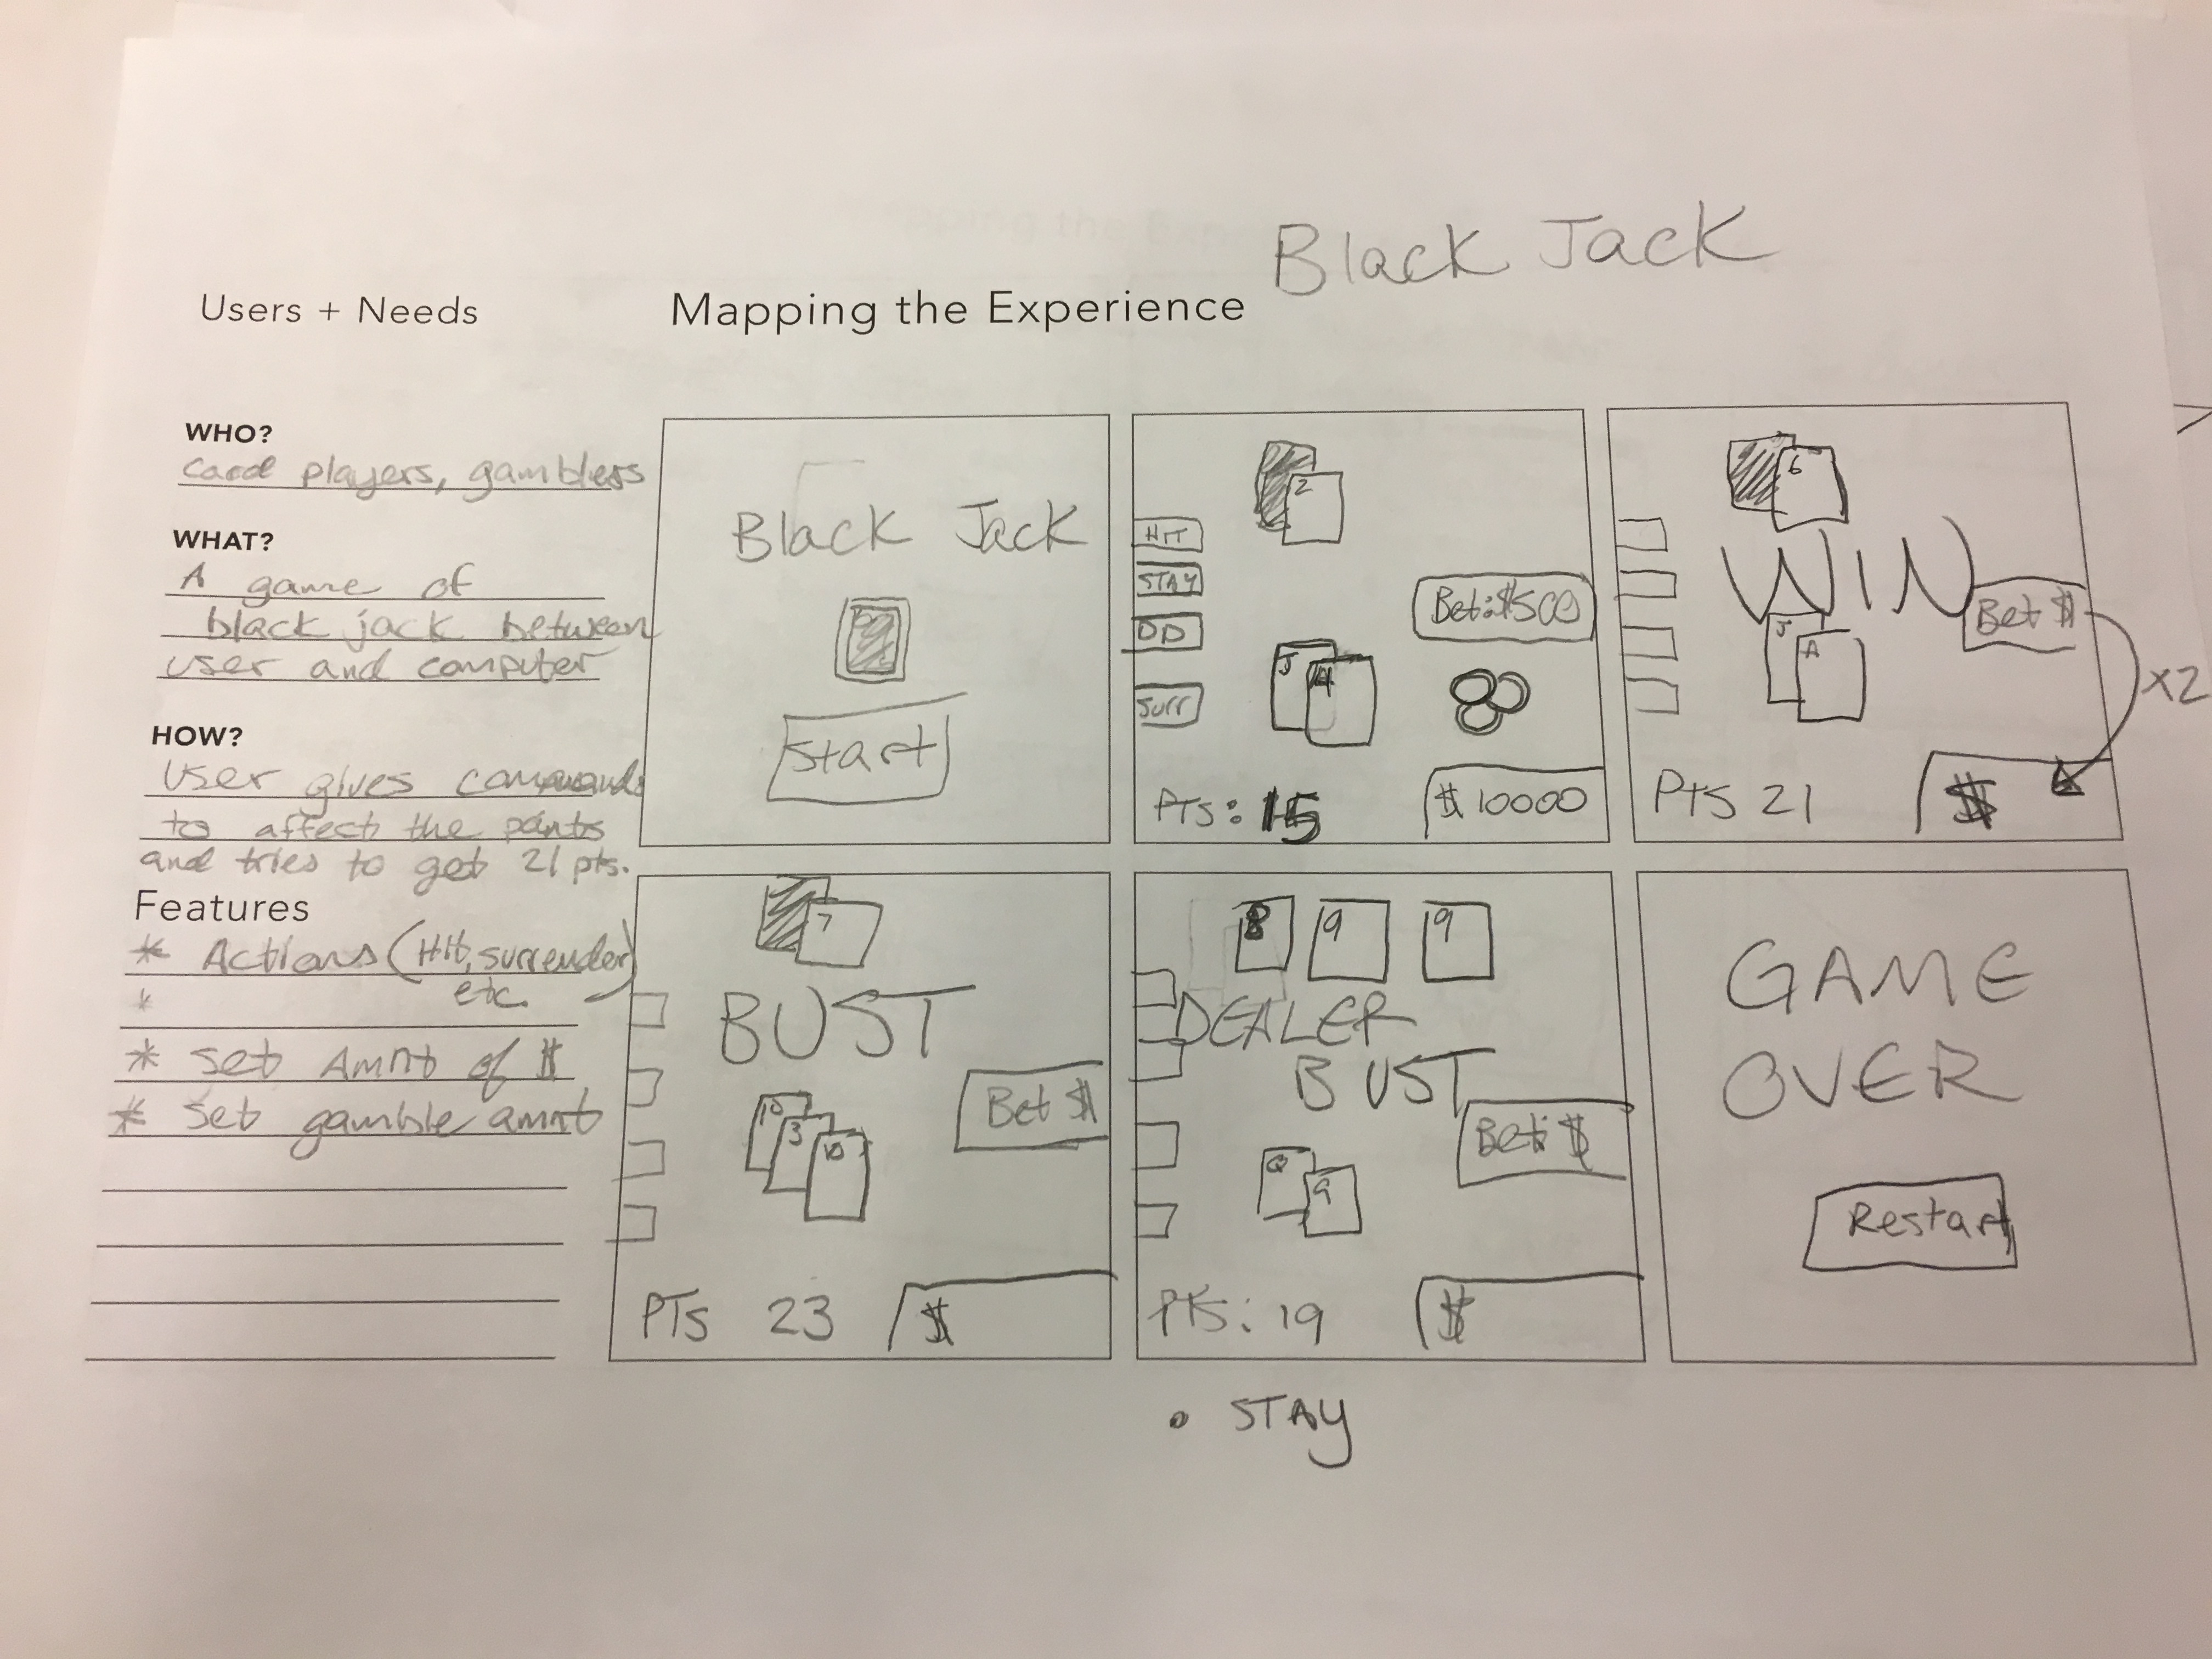 Black Jack
Users + Needs
Mapping the Experience
WHO?
card players, gamblers
WHAT?
A game of
black jack between
user and computer
HOW?
User gives commands
to affect the points
and tries to get 21 pts.
Features
* Actions (Hit, surrender
etc. )
*
* set Amnt of $
* set gamble amnt
Black Jack
Start
2
HIT
STAY
DD
Surr
Bet: $500
J
PTS: 15
$ 10000
6
WIN
Bet $
x2
J
A
PTS 21
$
7
BUST
Bet $
10
3
10
PTS 23
$
8 9 9
DEALER
BUST
Bet: $
Q
9
PTS: 19
$
GAME
OVER
Restart
• STAY